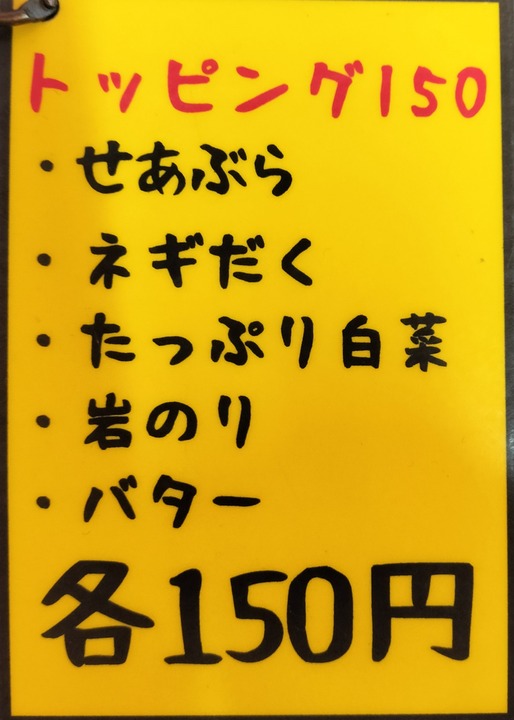 トッピング150
・せあぶら
・ネギだく
・たっぷり白菜
・岩のり
・バター
各150円